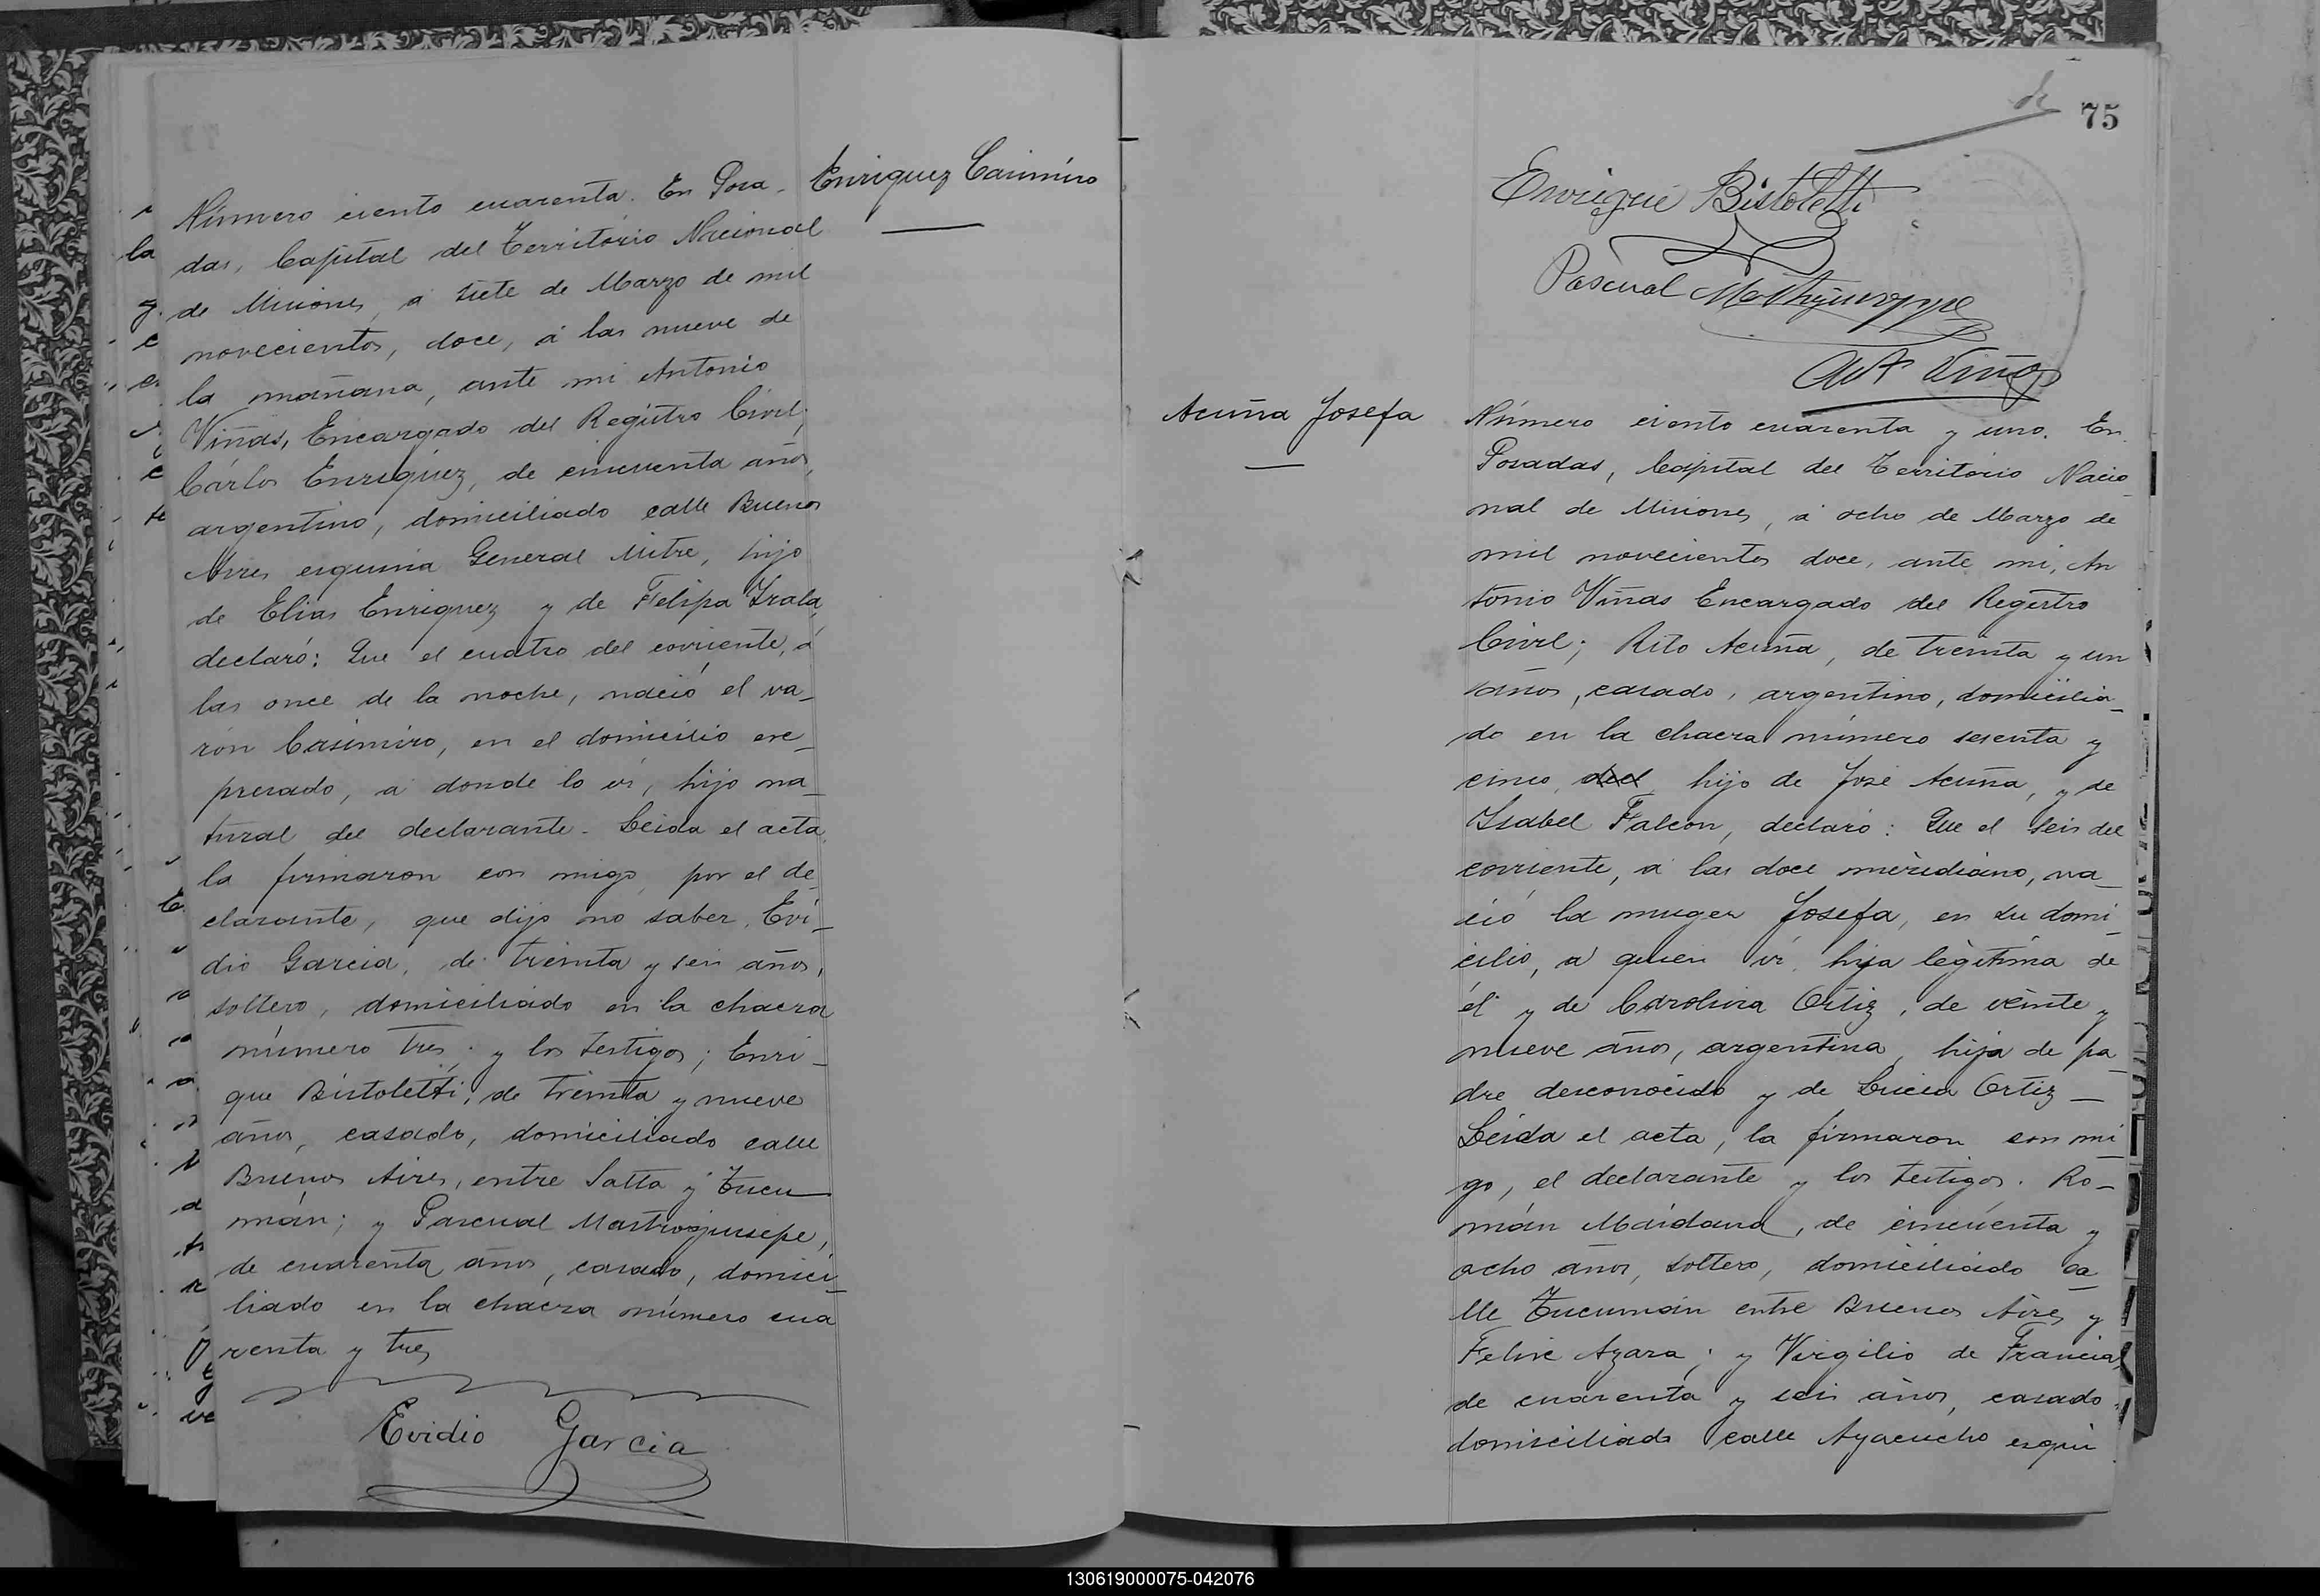 Enriquez Casimiro
Número ciento cuarenta. En Posa-
das, Capital del Territorio Nacional
de Misiones, á siete de Marzo de mil
novecientos, doce, á las nueve de
la mañana, ante mi Antonio
Viñas, Encargado del Registro Civil;
Cárlos Enriquez, de cincuenta años,
argentino, domiciliado calle Buenos
Aires esquina General Mitre, hijo
de Elias Enriquez y de Felipa Irala,
declaró: Que el cuatro del corriente, á
las once de la noche, nació el va-
rón Casimiro, en el domicilio ex-
presado, a donde lo ví, hijo na-
tural del declarante. Leida el acta,
la firmaron con migo, por el de-
clarante, que dijo no saber, Evi-
dio Garcia, de treinta y seis años,
soltero, domiciliado en la chacra
número tres; y los testigos; Enri-
que Bistoletti, de treinta y nueve
años, casado, domiciliado calle
Buenos Aires, entre Salta y Tucu-
mán; y Pascual Mastrogiusepe,
de cuarenta años, casado, domici-
liado en la chacra número cua
renta y tres
Evidio Garcia
75
Enrique Bistoletti
Pascual
Ant Viñas
Acuña Josefa
Número ciento cuarenta y uno. En
Posadas, Capital del Territorio Nacio-
nal de Misiones, á ocho de Marzo de
mil novecientos doce, ante mi, An
tonio Viñas Encargado del Registro
Civil; Rito Acuña, de treinta y un
años, casado, argentino, domicilia-
do en la chacra número sesenta y
cinco, hijo de José Acuña, y de
Isabel Falcon, declaró: Que el seis del
corriente, á las doce meridiano, na-
ció la muger Josefa, en su domi-
cilio, a quien ví, hija legítima de
él y de Carolina Ortiz, de veinte y
nueve años, argentina, hija de pa-
dre desconocido y de Lucia Ortiz-
Leida el acta, la firmaron con mi-
go, el declarante y los testigos. Ro-
mán Maidana, de cincuenta y
ocho años, soltero, domiciliado ca-
lle Tucumán entre Buenos Aires y
Felix Azara; y Virgilio de Francia,
de cuarenta y seis años, casado,
domiciliado calle Ayacucho esqui
130619000075-042076